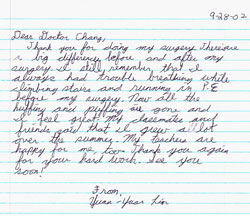 9-28-02
Dear Doctor Chang,
Thank you for doing my surgery. There are
a big differency before and after my
surgery. I still remember that I
always had trouble breathing while
climbing stairs and running in P.E
before my surgery. Now all the
huffing and puffing are gone and
I feel great! My classmates and
friends said that I grew a lot
over the summer. My teachers are
happy for me too. Thank you again
for your hard work. See you
soon!
From,
Yuan-Year Lin